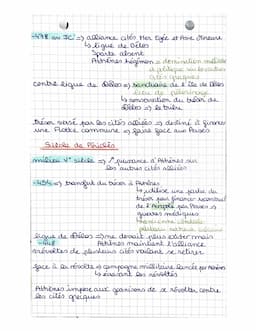 -478 av JC => alliance cités Mer Égée et Asie Mineure
↳ ligue de Délos
Sparte absent
Athènes hégémon = domination militaire
et politique sur les autres
cités grecques
centre ligue de Délos => sanctuaire de l'île de Délos
lieu de pèlerinage
↳ conservation du trésor de
Délos => le tribu
trésor versé par les cités alliées => destiné à financer
une flotte commune => faire face aux Perses
Siècle de Périclès
milieu Ve siècle => puissance d'Athènes sur
les autres cités alliées
-454 => transfert du trésor à Athènes
↳ utilise une partie du
trésor pour financer
de l'Acropole par Perses =>
guerres médiques
ligue de Délos => ne devait plus exister mais
-448 Athènes maintient l'alliance
révoltes de plusieurs cités voulant se retirer
face à la révolte => campagne militaire lancée par Athènes
↳ écrasant les révoltés
Athènes impose aux de se révolter contre
les cités grecques